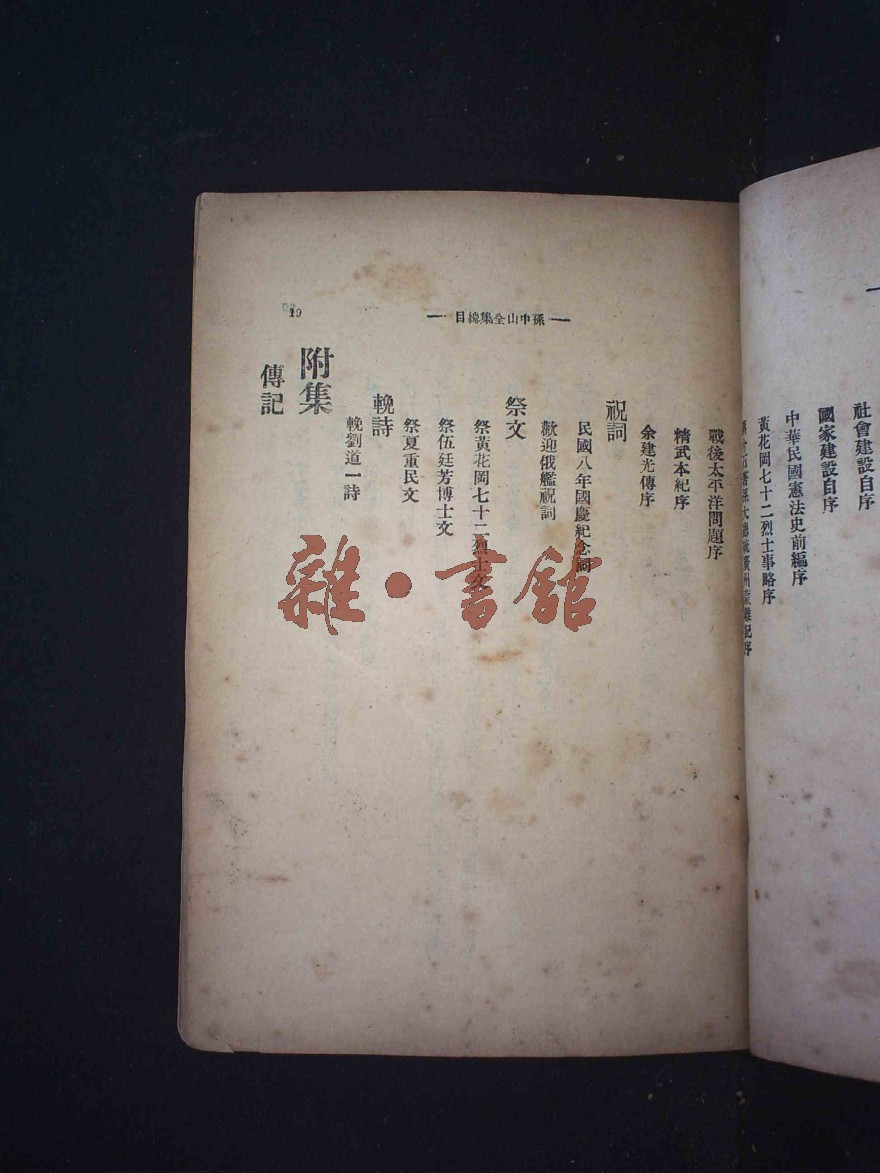 社會建設自序
國家建設自序
中華民國憲法史前編序
黃花岡七十二烈士事略序
大總統廣州蒙難記序
— 孫中山全集總目 —
19
戰後太平洋問題序
精武本紀序
余建光傳序
祝詞
民國八年國慶紀念詞
歡迎俄艦祝詞
祭文
祭黃花岡七十二烈士文
祭伍廷芳博士文
祭夏重民文
輓詩
輓劉道一詩
附集
傳記
雜·書館